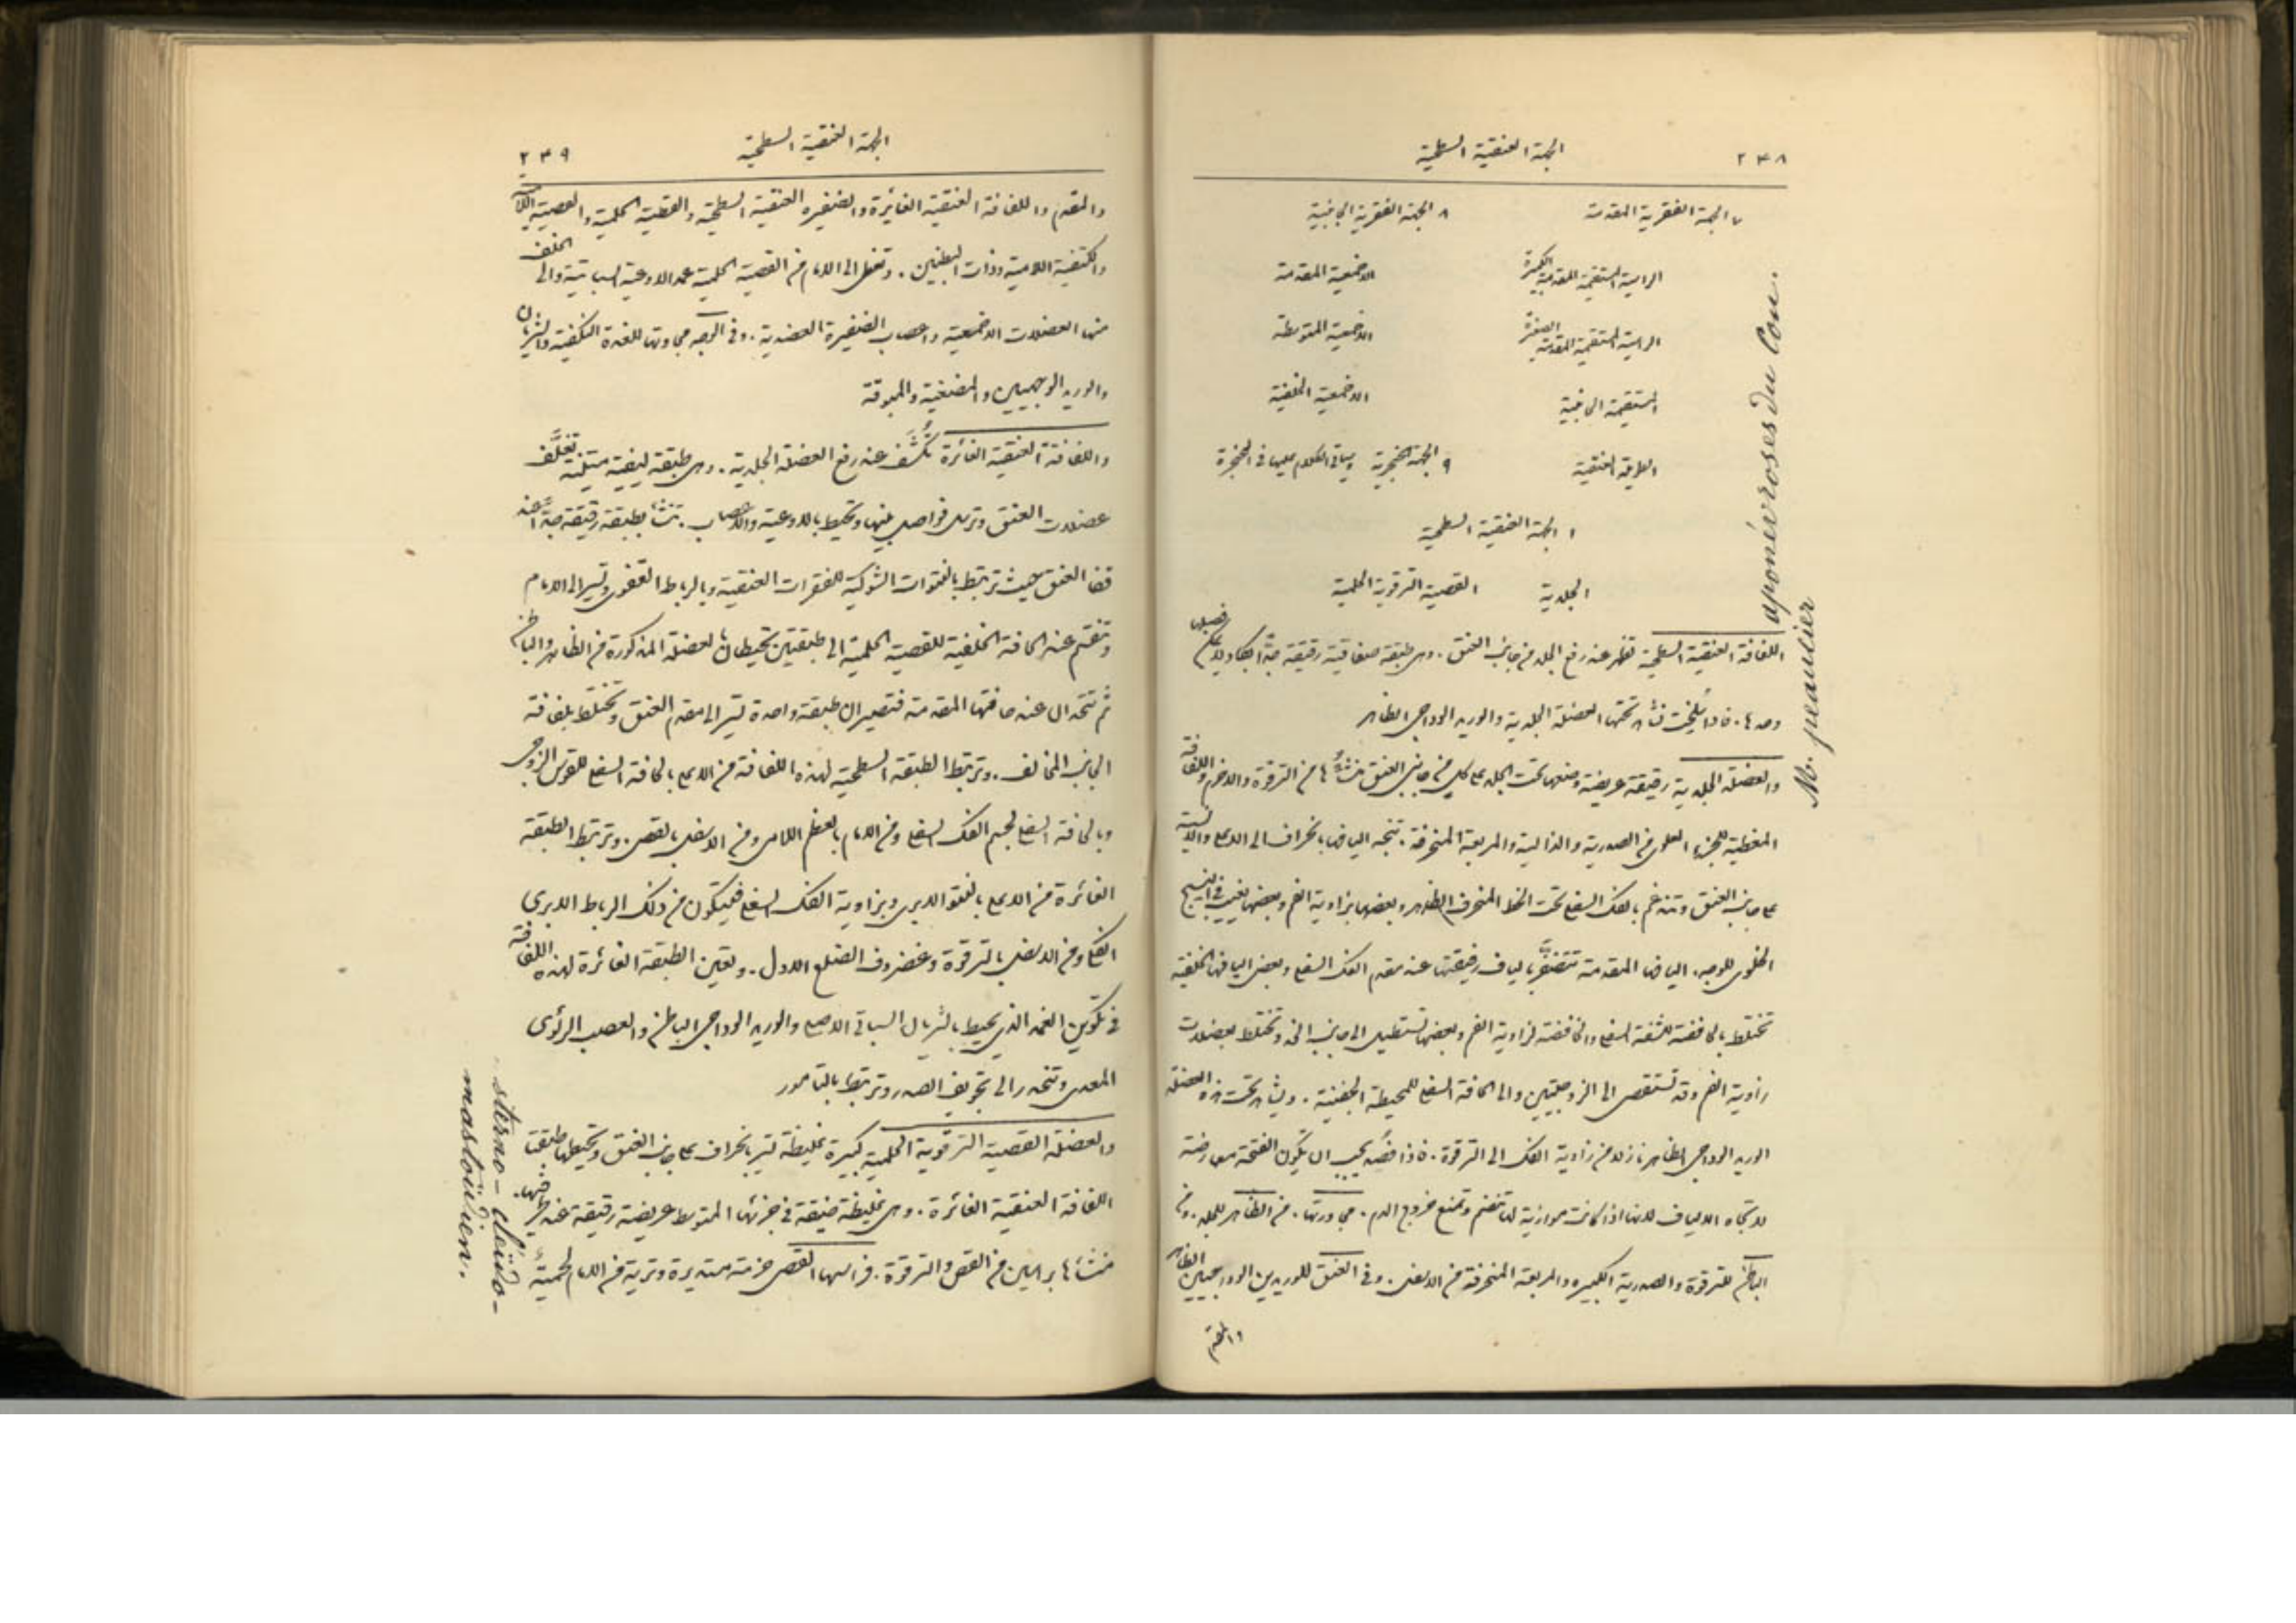 ٢٣٨
الجهة العنقية السطحية
٧ الجهة الفقرية المقدمة
٨ الجهة الفقرية الجانبية
الراسية المستقيمة المقدمة الكبيرة
الاخمعية المقدمة
الراسية المستقيمة المقدمة الصغيرة
الاخمعية المتوسطة
المستقيمة الجانبية
الاخمعية الخلفية
الطويلة العنقية
٩ الجهة الحنجرية وسياتي الكلام عليها في الحنجرة
١ الجهة العنقية السطحية
الجلدية
القصية الترقوية الحلمية
اللفافة العنقية السطحية تظهر عند رفع الجلد من جانب العنق . وهي طبقة صفاقية رقيقة جدًّا لا يكاد يمكن فصلها
وحدها . فاذا سُلخت شاهد تحتها العضلة الجلدية والوريد الوداجي الظاهر
والعضلة الجلدية رقيقة عريضة وضعها تحت الجلد على كل من جانبي العنق منشأُها من الترقوة والاخرم واللفافة
المغطية للجزء العلوي من الصدرية والدالية والمربعة المنحرفة . تتجه اليافها بانحراف الى الاعلى والانسية
على جانب العنق وتندغم بالفك السفلي تحت الخط المنحرف الظاهر وبعضها بزاوية الفم وبعضها يغيب في النسيج
الخلوي للوجه . اليافها المقدمة تتضفر بالياف رفيقتها عند مقدم الفك السفلي وبعض اليافها الخلفية
تختلط بالخافضة للشفة السفلى والخافضة لزاوية الفم وبعضها تستطيل الى جانب الخد وتختلط بعضلات
زاوية الفم وقد تستقصى الى الزوجيتين والى الحافة السفلى للمحيطة الجفنية . ويشاهد تحت هذه العضلة
الوريد الوداجي الظاهر نازلًا من زاوية الفك الى الترقوة . فاذا فُصد يجب ان تكون الفتحة معارضة
لاتجاه الالياف لانها اذا كانت موازية لها تنضم وتمنع خروج الدم . مجاورتها . من الظاهر للجلد . ومن
الباطن للترقوة والصدرية الكبيرة والمربعة المنحرفة من الاسفل . وفي العنق للوريدين الوداجيين الظاهر
والمقدم
aponévroses du Cou.
M. peaucier
٢٣٩
الجهة العنقية السطحية
والمقدم واللفافة العنقية الغائرة والضفيرة العنقية السطحية والقصية الحلمية والقصية اللامية
والكتفية اللامية وذات البطنين . وتغطي الى الامام من القصية الحلمية غمد الاوعية السباتية والى الخلف
منها العضلات الاخمعية واعصاب الضفيرة العضدية . وفي الوجه مجاورتها للغدة النكفية والشريان
والوريد الوجهيين والمضغية والمبوقة
واللفافة العنقية الغائرة تُكشَف عند رفع العضلة الجلدية . وهي طبقة ليفية متينة تغلّف
عضلات العنق وترسل فواصل بينها وتحيط بالاوعية والاعصاب . تنشأ بطبقة رقيقة جدًّا عند
قفا العنق حيث ترتبط بالنتوات الشوكية للفقرات العنقية وبالرباط القفوي وتسير الى الامام
وتنقسم عند الحافة الخلفية للقصية الحلمية الى طبقتين تحيطان بالعضلة المذكورة من الظاهر والباطن
ثم تتحدان عند حافتها المقدمة فتصيران طبقة واحدة تسير الى مقدم العنق وتختلط بلفافة
الجانب المخالف . وترتبط الطبقة السطحية لهذه اللفافة من الاعلى بالحافة السفلى للقوس الزوجي
وبالحافة السفلى لجسم الفك السفلي ومن الامام بالعظم اللامي ومن الاسفل بالقص . وترتبط الطبقة
الغائرة من الاعلى بالنتو الابري وبزاوية الفك السفلي فيتكون من ذلك الرباط الابري
الفكي ومن الاسفل بالترقوة وغضروف الضلع الاول . وتعين الطبقة الغائرة لهذه اللفافة
في تكوين الغمد الذي يحيط بالشريان السباتي الاصلي والوريد الوداجي الباطن والعصب الرئوي
المعدي وتنحدر الى تجويف الصدر وترتبط بالتامور
والعضلة القصية الترقوية الحلمية كبيرة غليظة تسير بانحراف على جانب العنق وتحيطها طبقتا
اللفافة العنقية الغائرة . وهي غليظة ضيقة في جزئها المتوسط عريضة رقيقة عند طرفيها .
منشأها براسين من القص والترقوة . فراسها القصي حزمة مستديرة وترية من الامام لحمية
sterno-cleido-
mastoïdien.